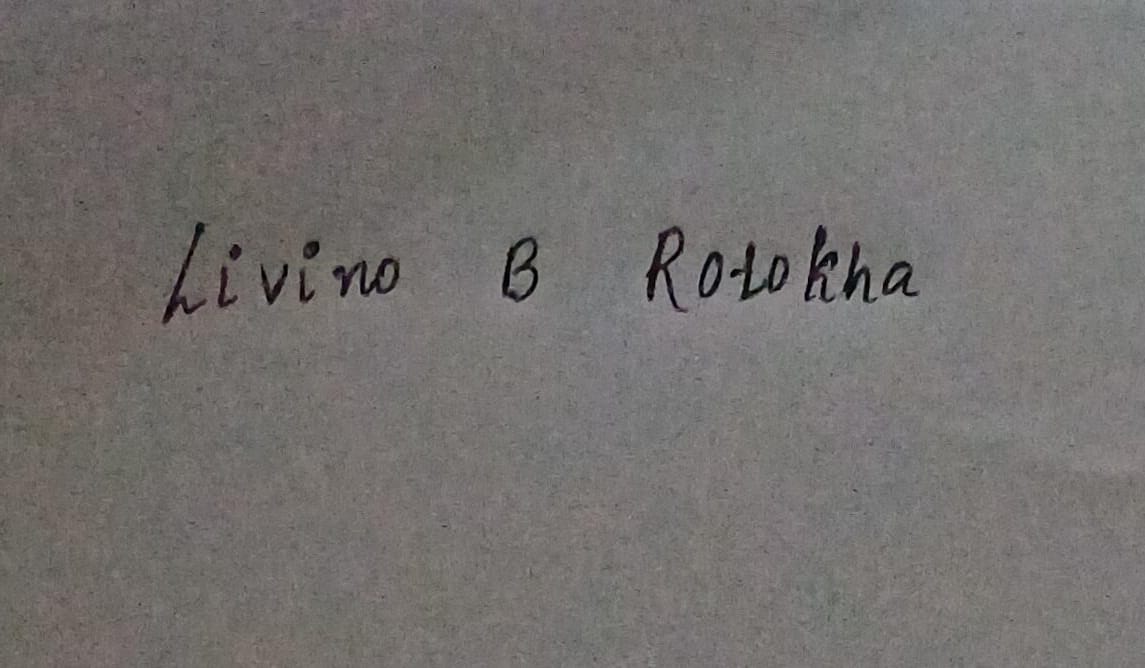 Livino B Rotokha